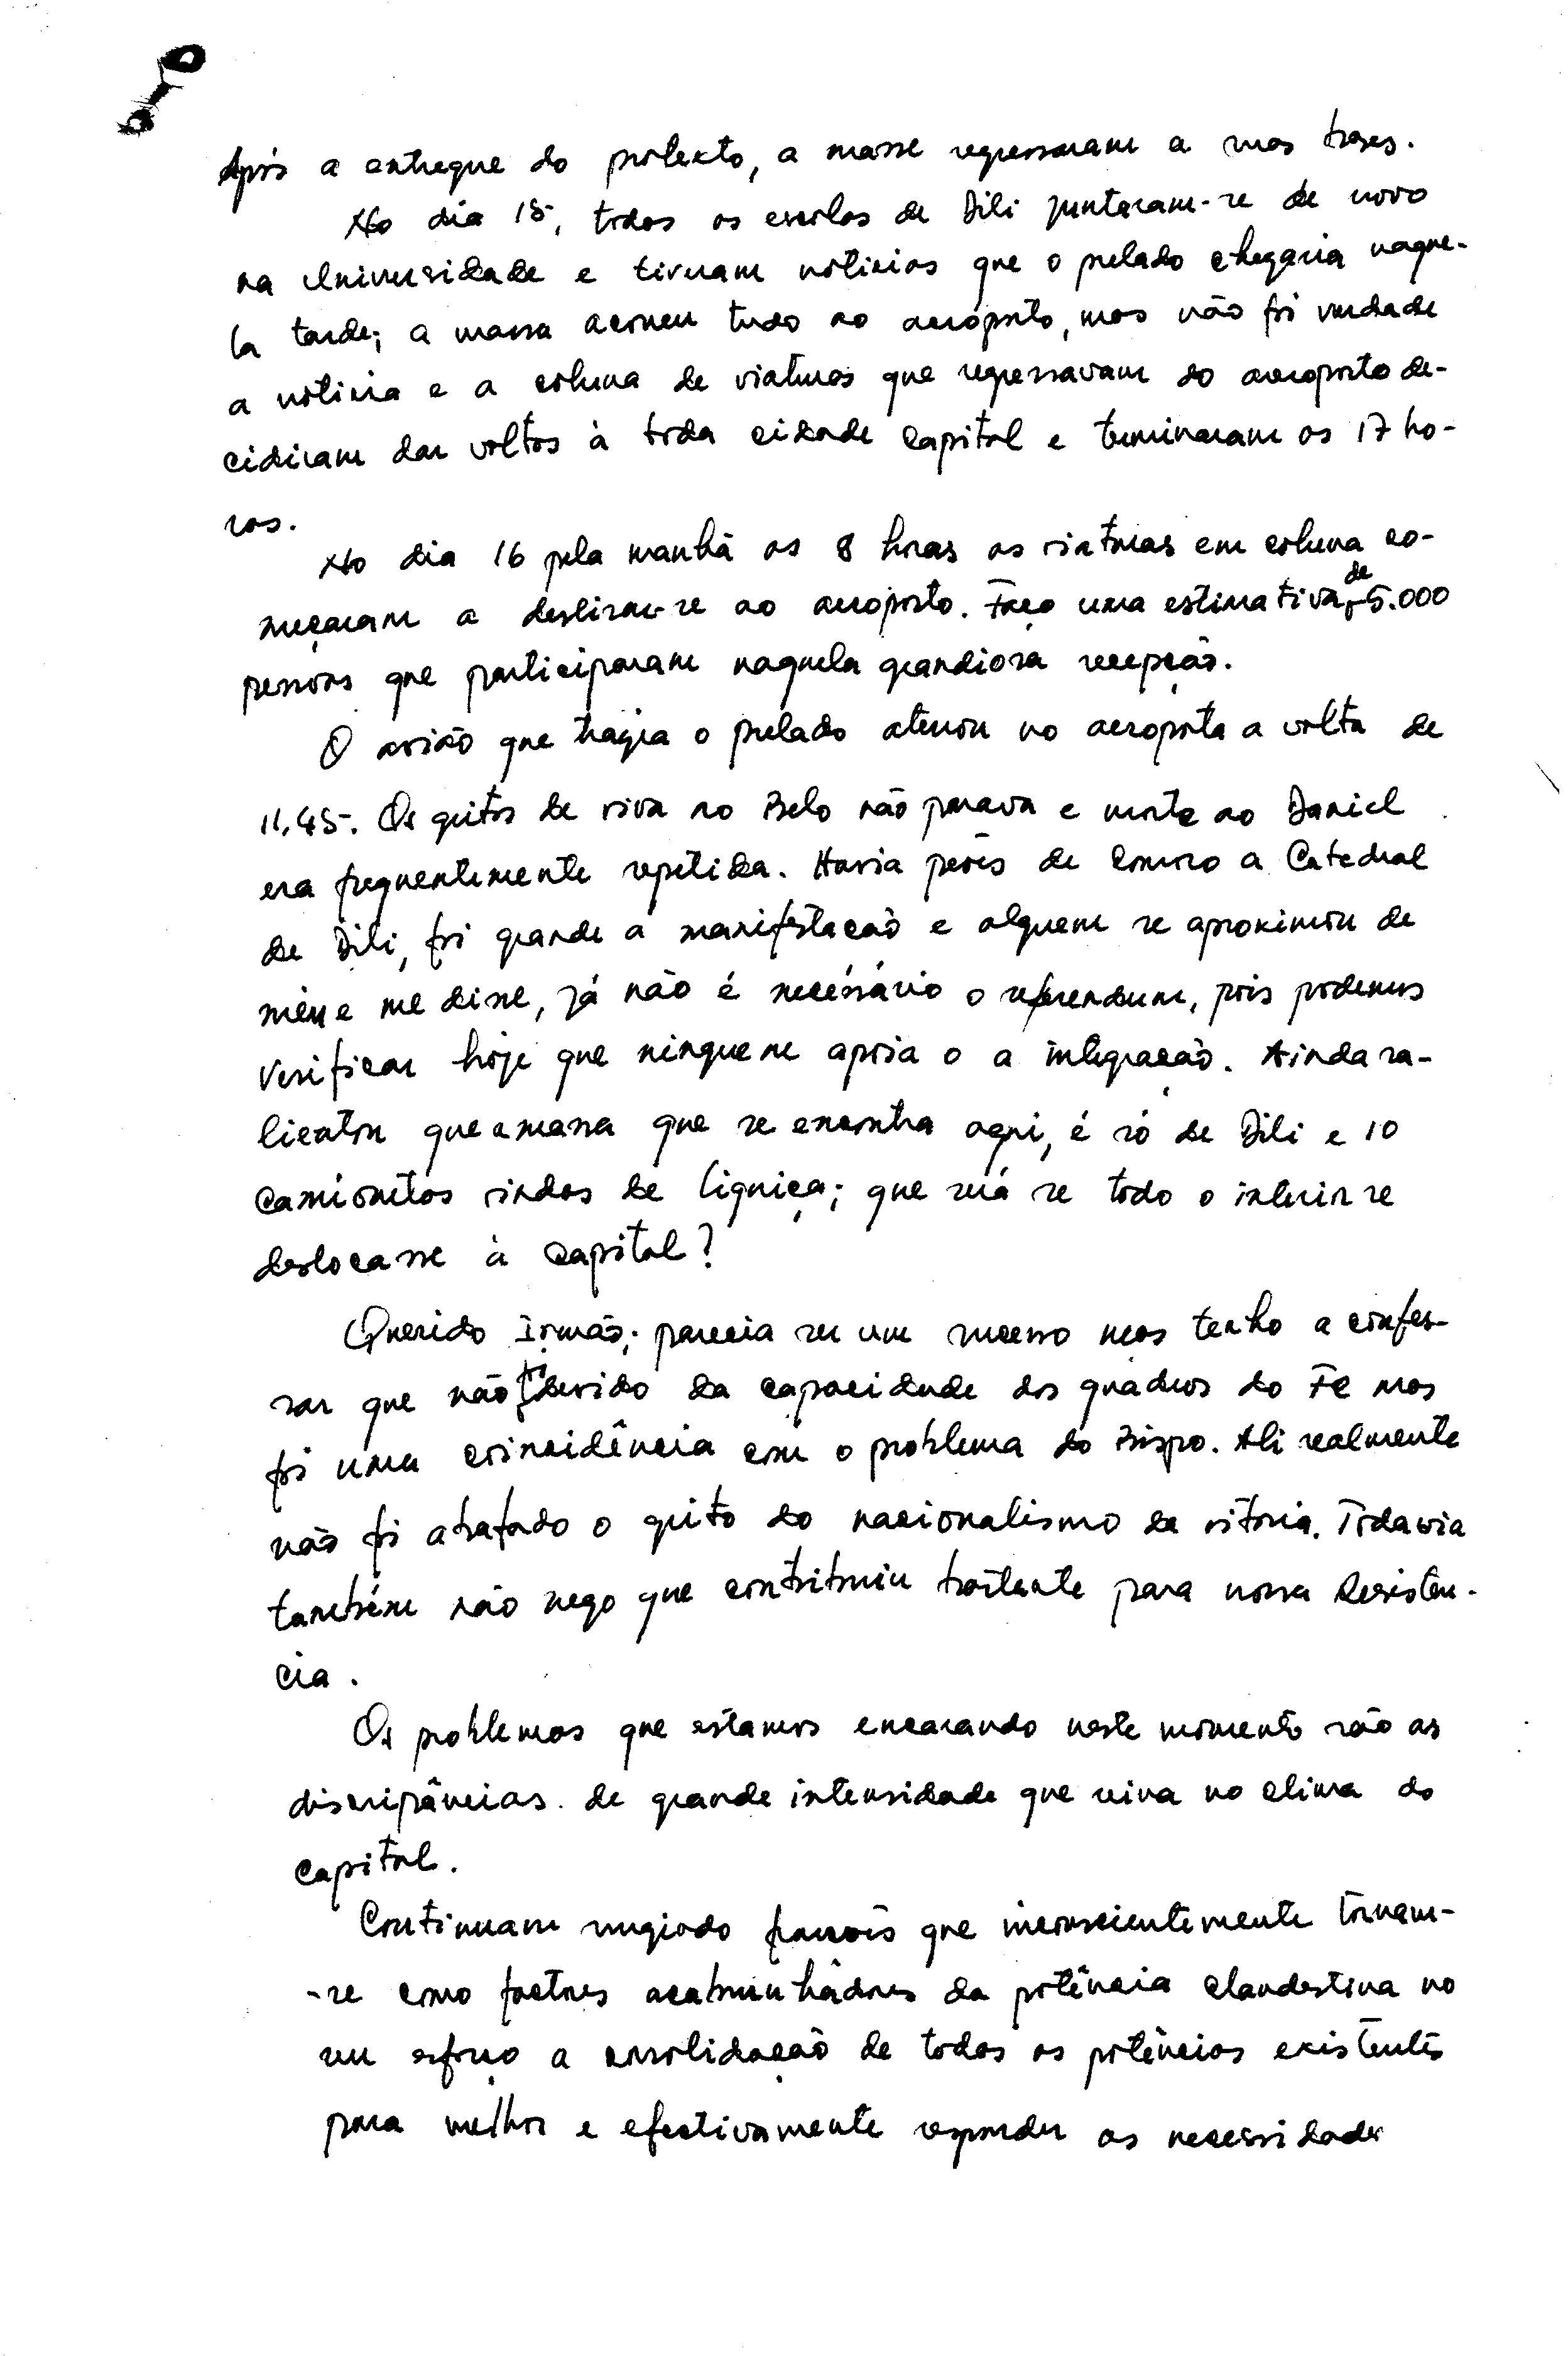 Após a entregue do protexto, a masse regressaram a suas bases.
No dia 15, todas as escolas de Dili juntaram-se de novo
na Universidade e tiveram noticias que o prelado chegaria naque-
la tarde; a massa acorreu tudo ao aeroporto, mas não foi verdade
a noticia e a coluna de viaturas que regressavam do aeroporto de-
cidiram dar voltas à toda cidade capital e terminaram as 17 ho-
ras.
No dia 16 pela manhã as 8 horas as viaturas em coluna co-
meçaram a deslizar-se ao aeroporto. Faço uma estimativa de 5.000
pessoas que participaram naquela grandiosa recepção.
O avião que trazia o prelado aterrou no aeroporto a volta de
11.45. Os gritos de viva ao Belo não parava e morte ao Daniel
era frequentemente repetida. Havia de Comoro a Catedral
de Dili, foi grande a manifestação e alguem se aproximou de
mim e me disse, já não é necéssário o referendum, pois podemos
verificar hoje que ninguem apoia o a integração. Ainda sa-
lientou que a massa que se encontra aqui, é só de Dili e 10
camionetas vindas de liquiça; que será se todo o interior se
deslocasse à capital?
Querido Irmão; parecia ser um sucesso mas tenho a confes-
sar que não foi devido da capacidade dos quadros do FC mas
foi uma coincidência com o problema do Bispo. Ali realmente
não foi abafado o grito do nacionalismo da vitória. Todavia
também não nego que contribuiu bastante para nossa Resistên-
cia.
Os problemas que estamos encarando neste momento são as
discripâncias de grande intensidade que reina no clima do
capital.
Continuam surgindo que inconscientemente tornam-
-se como factores acabrunhadores da potência clandestina no
seu esforço a consolidação de todas as potências existentes
para melhor e efectivamente responder as necessidades